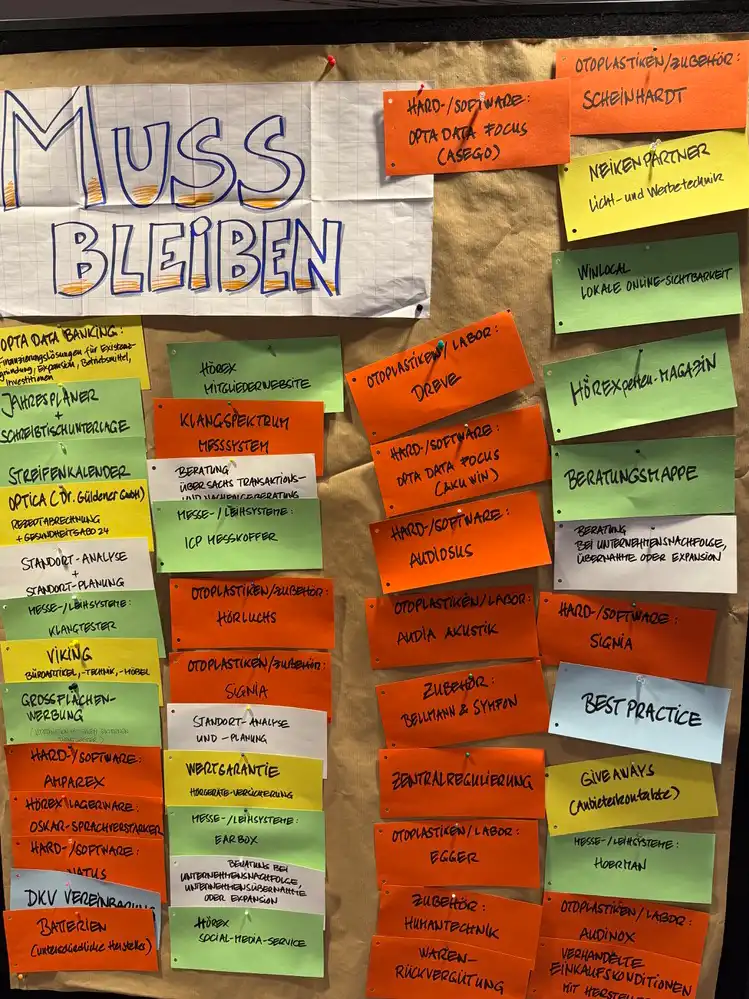 MUSS
BLEIBEN
OPTA DATA BANKING:
Finanzierungslösungen für Existenz-
gründung, Expansion, Betriebsmittel,
Investitionen
JAHRESPLANER
+
SCHREIBTISCHUNTERLAGE
STREIFENKALENDER
OPTICA (Dr. Güldener GmbH)
REZEPTABRECHNUNG
+ GESUNDHEITSABO 24
STANDORT-ANALYSE
+
STANDORT-PLANUNG
MESSE-/LEIHSYSTEME:
KLANGTESTER
VIKING
BÜROARTIKEL, -TECHNIK, -MÖBEL
GROSSFLÄCHEN-
WERBUNG
HARD-/SOFTWARE:
AMPAREX
HÖREX LAGERWARE:
OSKAR-SPRACHVERSTÄRKER
HARD-/SOFTWARE:
NATUS
DKV VEREINBARUNG
BATTERIEN
(unterschiedliche Hersteller)
HÖREX
MITGLIEDERWEBSITE
KLANGSPEKTRUM
MESSSYSTEM
BERATUNG
ÜBER SACHS TRANSAKTIONS-
UND NACHFOLGEBERATUNG
MESSE-/LEIHSYSTEME:
ICP MESSKOFFER
OTOPLASTIKEN/ZUBEHÖR:
HÖRLUCHS
OTOPLASTIKEN/ZUBEHÖR:
SIGNIA
STANDORT-ANALYSE
UND -PLANUNG
WERTGARANTIE
HÖRGERÄTE-VERSICHERUNG
MESSE-/LEIHSYSTEME:
EARBOX
BERATUNG BEI
UNTERNEHMENSNACHFOLGE,
UNTERNEHMENSÜBERNAHME
ODER EXPANSION
HÖREX
SOCIAL-MEDIA-SERVICE
HARD-/SOFTWARE:
OPTA DATA FOCUS
(ASEGO)
OTOPLASTIKEN/LABOR:
DREVE
HARD-/SOFTWARE:
OPTA DATA FOCUS
(AKUWIN)
HARD-/SOFTWARE:
AUDIOSUS
OTOPLASTIKEN/LABOR:
AUDIA AKUSTIK
ZUBEHÖR:
BELLMANN & SYMFON
ZENTRALREGULIERUNG
OTOPLASTIKEN/LABOR:
EGGER
ZUBEHÖR:
HUMANTECHNIK
WAREN-
RÜCKVERGÜTUNG
OTOPLASTIKEN/ZUBEHÖR:
SCHEINHARDT
NEIKENPARTNER
Licht- und Werbetechnik
WINLOCAL
LOKALE ONLINE-SICHTBARKEIT
HÖRExperten-MAGAZIN
BERATUNGSMAPPE
BERATUNG
BEI UNTERNEHMENSNACHFOLGE,
ÜBERNAHME ODER EXPANSION
HARD-/SOFTWARE:
SIGNIA
BEST PRACTICE
GIVEAWAYS
(Anbieterkontakte)
MESSE-/LEIHSYSTEME:
HOERMAN
OTOPLASTIKEN/LABOR:
AUDINOX
VERHANDELTE
EINKAUFSKONDITIONEN
MIT